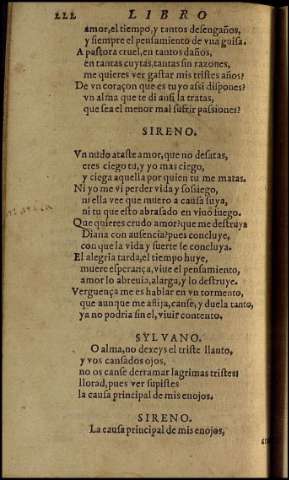 222 LIBRO
amor, el tiempo, y tantos desengaños,
y siempre el pensamiento de vna guisa.
A pastora cruel, en tantos daños,
en tantas cuytas, tantas sin razones,
me quieres ver gastar mis tristes años?
De vn coraçon que es tuyo assi dispones?
vn alma que te di ansi la tratas,
que sea el menor mal suffrir passiones?
SIRENO.
Vn nudo ataste amor, que no desatas,
eres ciego tu, y yo mas ciego,
y ciega aquella por quien tu me matas.
Ni yo me vi perder vida y sossiego,
ni ella vee que muero a causa suya,
ni tu que esto abrasado en viuo fuego.
Que quieres crudo amor? que me destruya
Diana con ausencia? pues concluye,
con que la vida y suerte se concluya.
El alegria tarda, el tiempo huye,
muere esperança, viue el pensamiento,
amor lo abreuia, alarga, y lo destruye.
Verguença me es hablar en vn tormento,
que aunque me aflija, canse, y duela tanto,
ya no podria sin el, viuir contento.
SYLVANO.
O alma, no dexeys el triste llanto,
y vos cansados ojos,
no os canse derramar lagrimas tristes:
llorad, pues ver supistes
la causa principal de mis enojos.
SIRENO.
La causa principal de mis enojos,